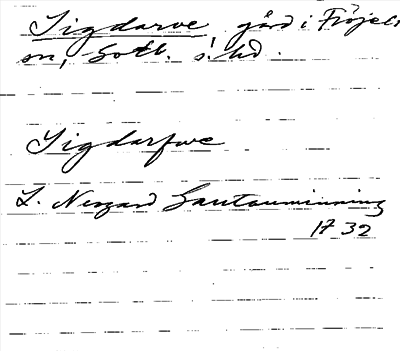 Sigdarve, gård i Fröjel
sn, Gotl. s. hd.
Sigdarfwe
L. Neogard Gautauminning
1732